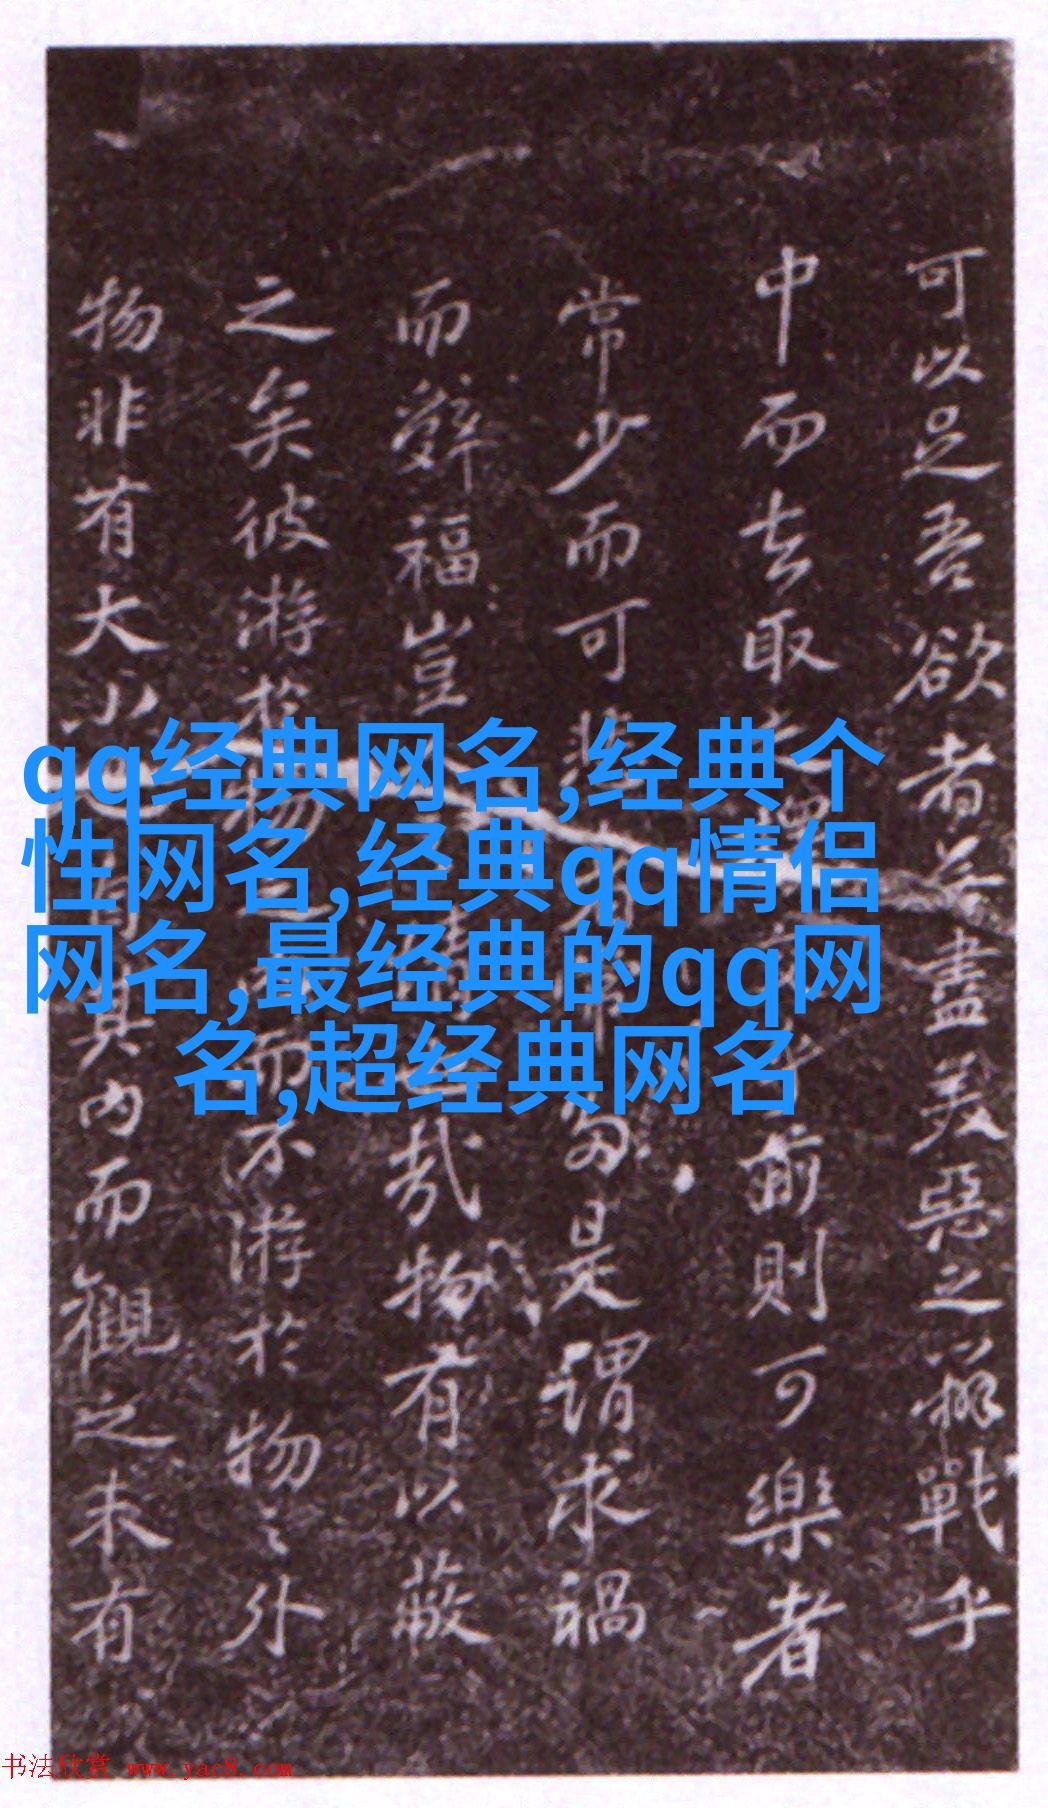 qq经典网名,经典个
性网名,经典qq情侣
网名,最经典的qq网
名,超经典网名
可以足吾欲者盡美惡之辨戰乎
中而去取前則可樂者
常少而可多是謂求禍
而辭福豈哉物有以蔽
之矣彼游於物而不游於物之外
物非有大小其内而觀之未有
书法欣赏 www.yac8.com